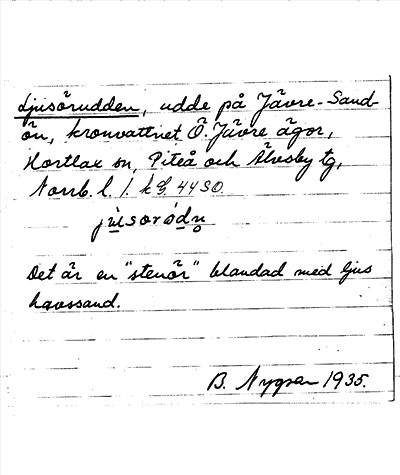 Ljusörudden, udde på Jävre-Sand-
ön, kronvattnet Ö. Jävre ägor,
Hortlax sn, Piteå och Älvsby tg,
Norrb. l. 1. k 44 SO
Det är en "stenör" blandad med ljus
havssand.
B. Nygren 1935.